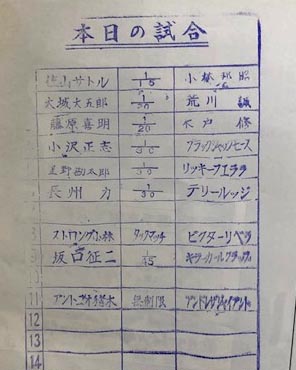 本日の試合
佐山サトル 1/15 小林邦昭
大城大五郎 1/20 荒川 誠
藤原喜明 1/20 木戸 修
小沢正志 1/30 ブラックジャックモース
星野勘太郎 1/30 リッキーフエララ
長州 力 1/30 テリールッジ
8 ストロング小林 タッグマッチ ビクターリベラ
9 坂口征二 45 キラーカールクラップ
11 アントニオ猪木 無制限 アンドレザジャイアント
12
13
14